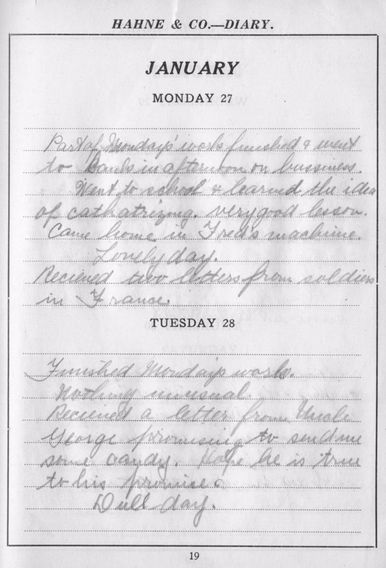 HAHNE & CO.—DIARY.
JANUARY
MONDAY 27
Part of Monday's work finished & went
to Banks in afternoon on bussiness.
Went to school & learned the idea
of cathatrizing. very good lesson.
Came home in Fred's machine.
Lovely day.
Recieved two letters from soldiers
in France.
TUESDAY 28
Finished Mondays work.
Nothing unusual.
Recieved a letter from Uncle
George promising to send me
some candy. Hope he is true
to his promise.
Dull day.
19